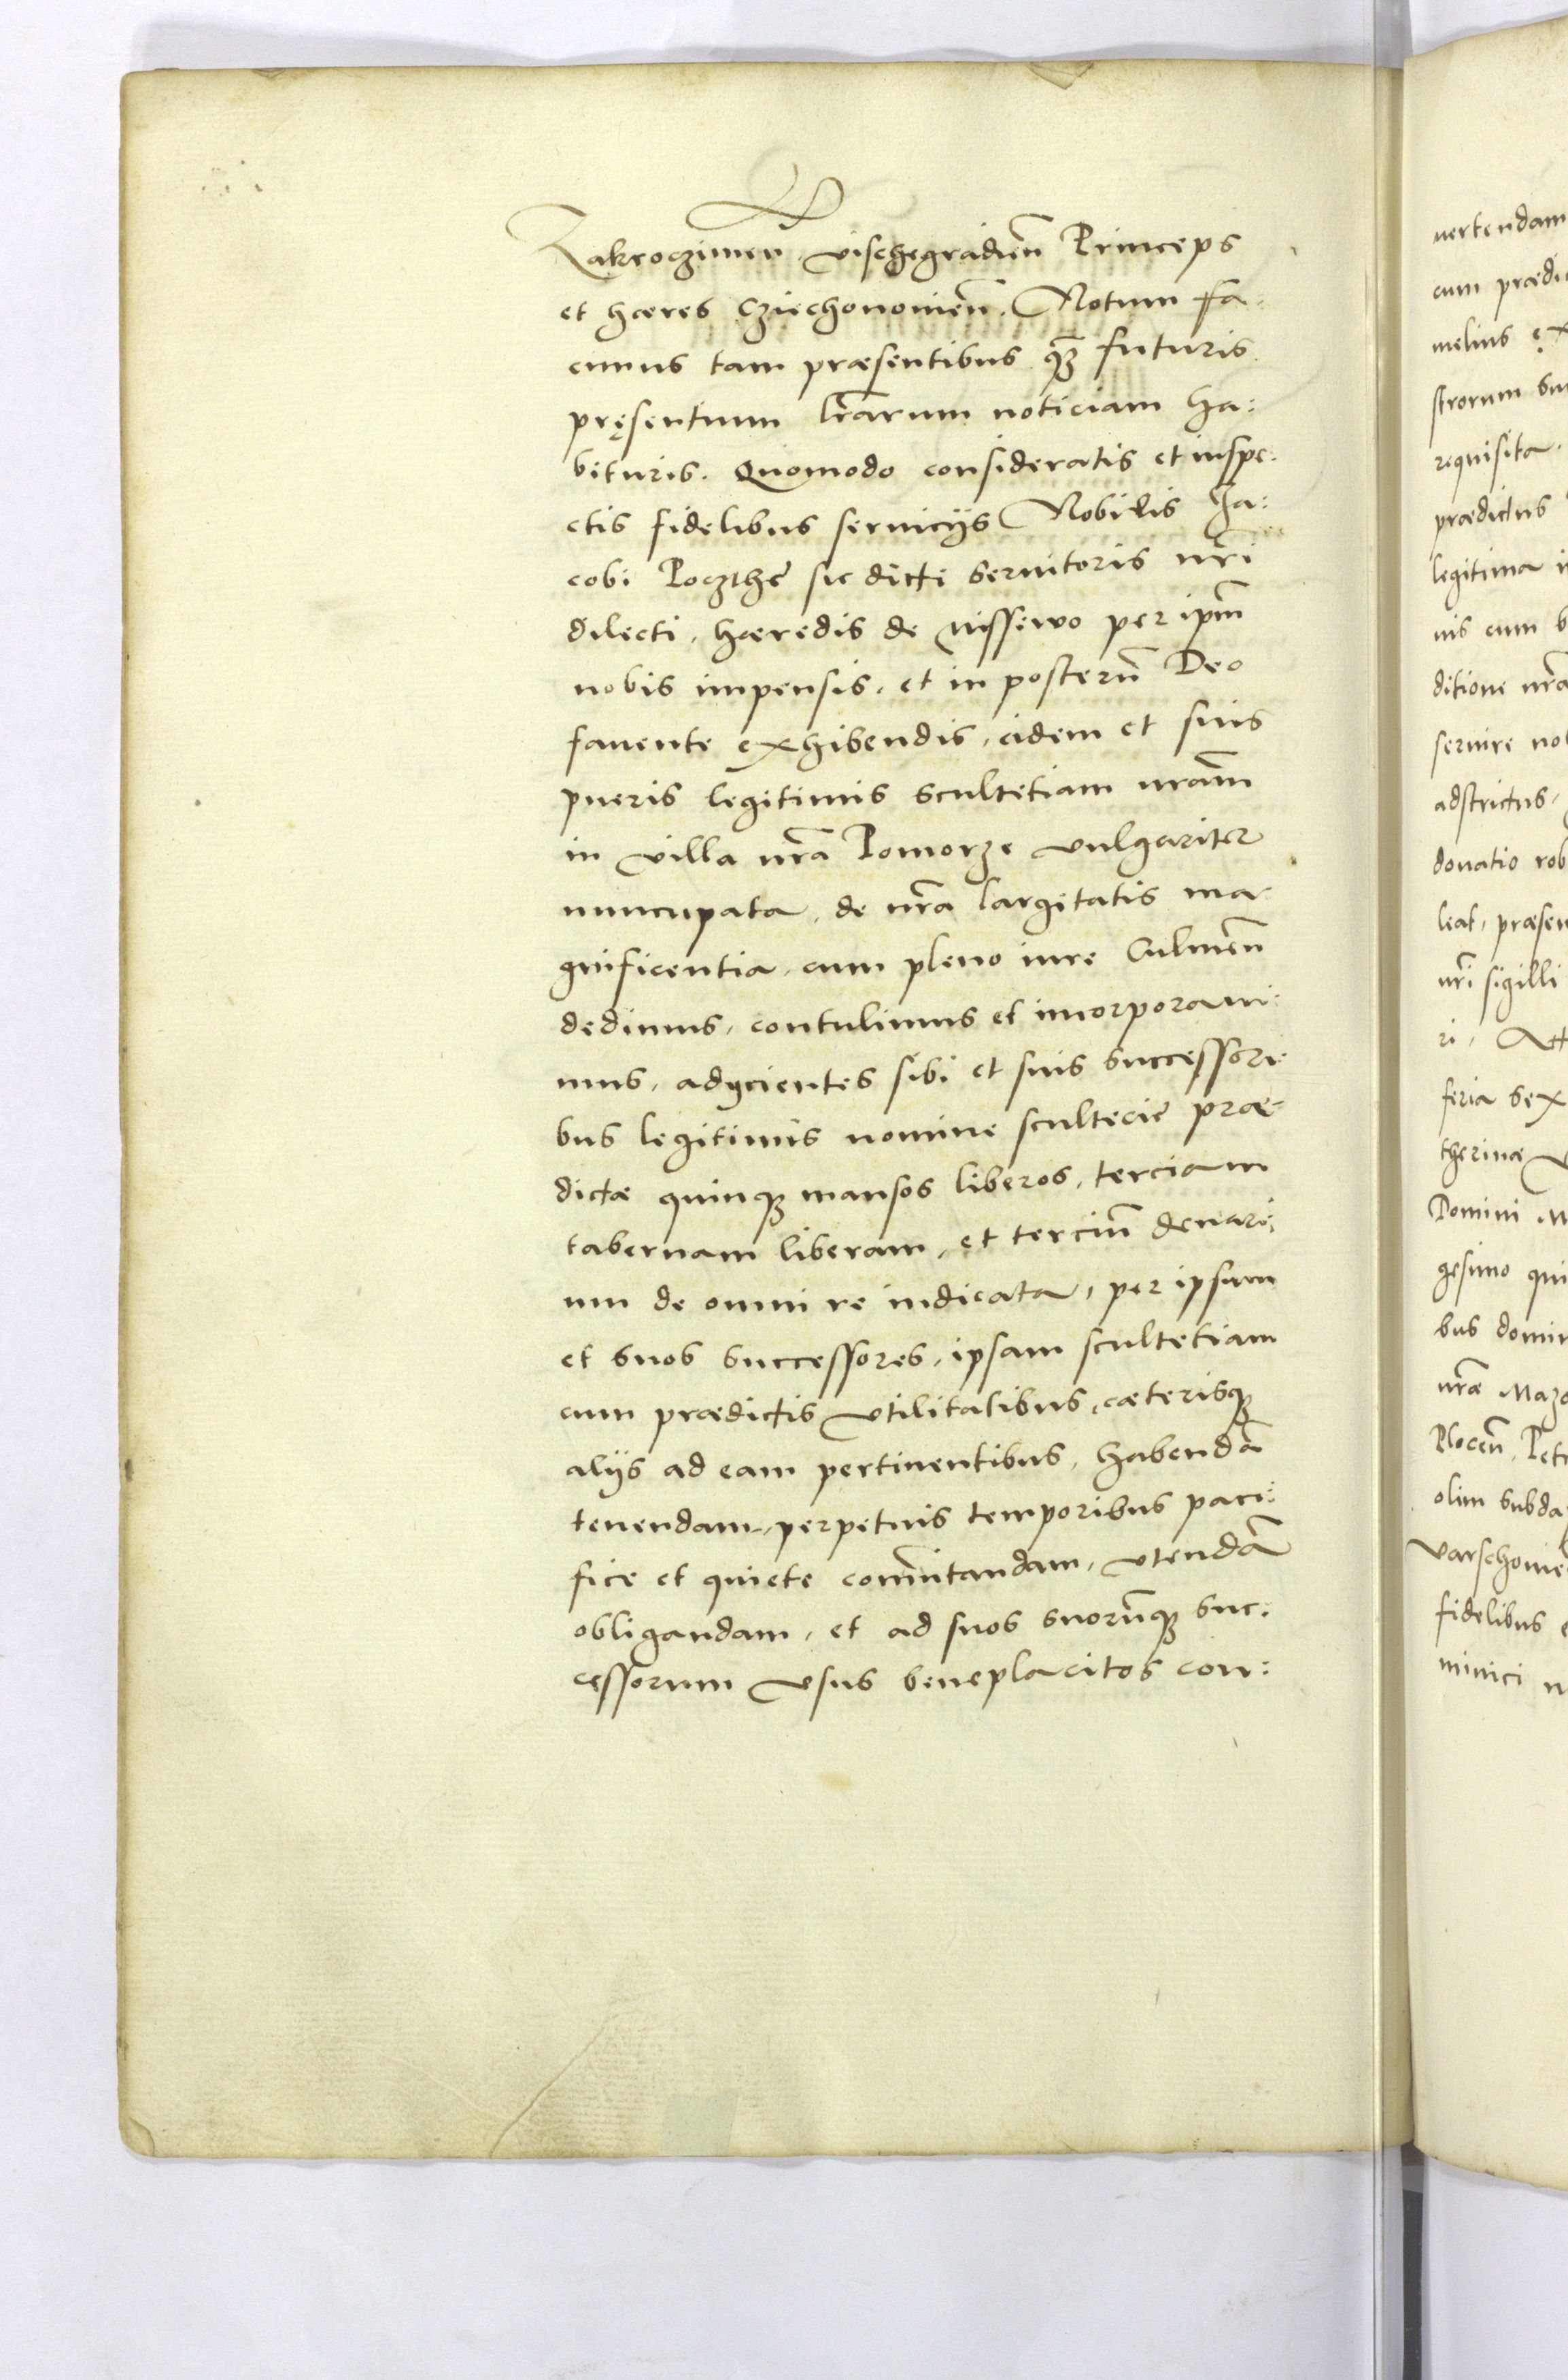 Zakroczimen̄, vischegradien̄ Princeps
et hæres Cziechonomien̄. Notum fa-
cimus tam præsentibus qʒ̄ futuris
pręsentium lr̄arum noticiam ha:
bituris. Quomodo consideratis et inspe:
ctis fidelibus seruicijs Nobilis Ja:
cobi Poczthę sic dicti seruitoris nr̄i
dilecti, hæredis de Nissewo per ipm̄
nobis impensis, et in posterū Deo
fauente exhibendis, eidem et suis
pueris legitimis scultetiam nr̄am
in villa nr̄a Pomorze vulgariter
nuncupata, de nr̄a largitatis ma-
gnificentia, cum pleno iure Culmen̄
dedimus, contulimus et incorporaui:
mus, adijcientes sibi et suis successori-
bus legitimis nomine scultecię præ-
dictæ quinqʒ mansos liberos, terciam
tabernam liberam, et terciū denari:
um de omni re iudicata, per ipsum
et suos successores, ipsam scultetiam
cum prædictis vtilitatibus, cæterisqʒ
alijs ad eam pertinentibus, habendā
tenendam, perpetuis temporibus paci:
fice et quiete com̄utandam, vtendā
obligandam, et ad suos suorūqʒ suc:
cessorum vsus beneplacitos con:
uertendam
cum prædi
melius ex
strorum su
requisita.
prædictus
legitima i
nis cum b
ditione nr̄a
seruire no
adstrictus,
donatio rob
leat, præsen
nr̄i sigilli
ri.
feria sex
therinæ
Domini M
gesimo qui
bus domin
nr̄æ Mazo
Plocen̄, Petr
olim subda
Varschouie
fidelibus
minici n